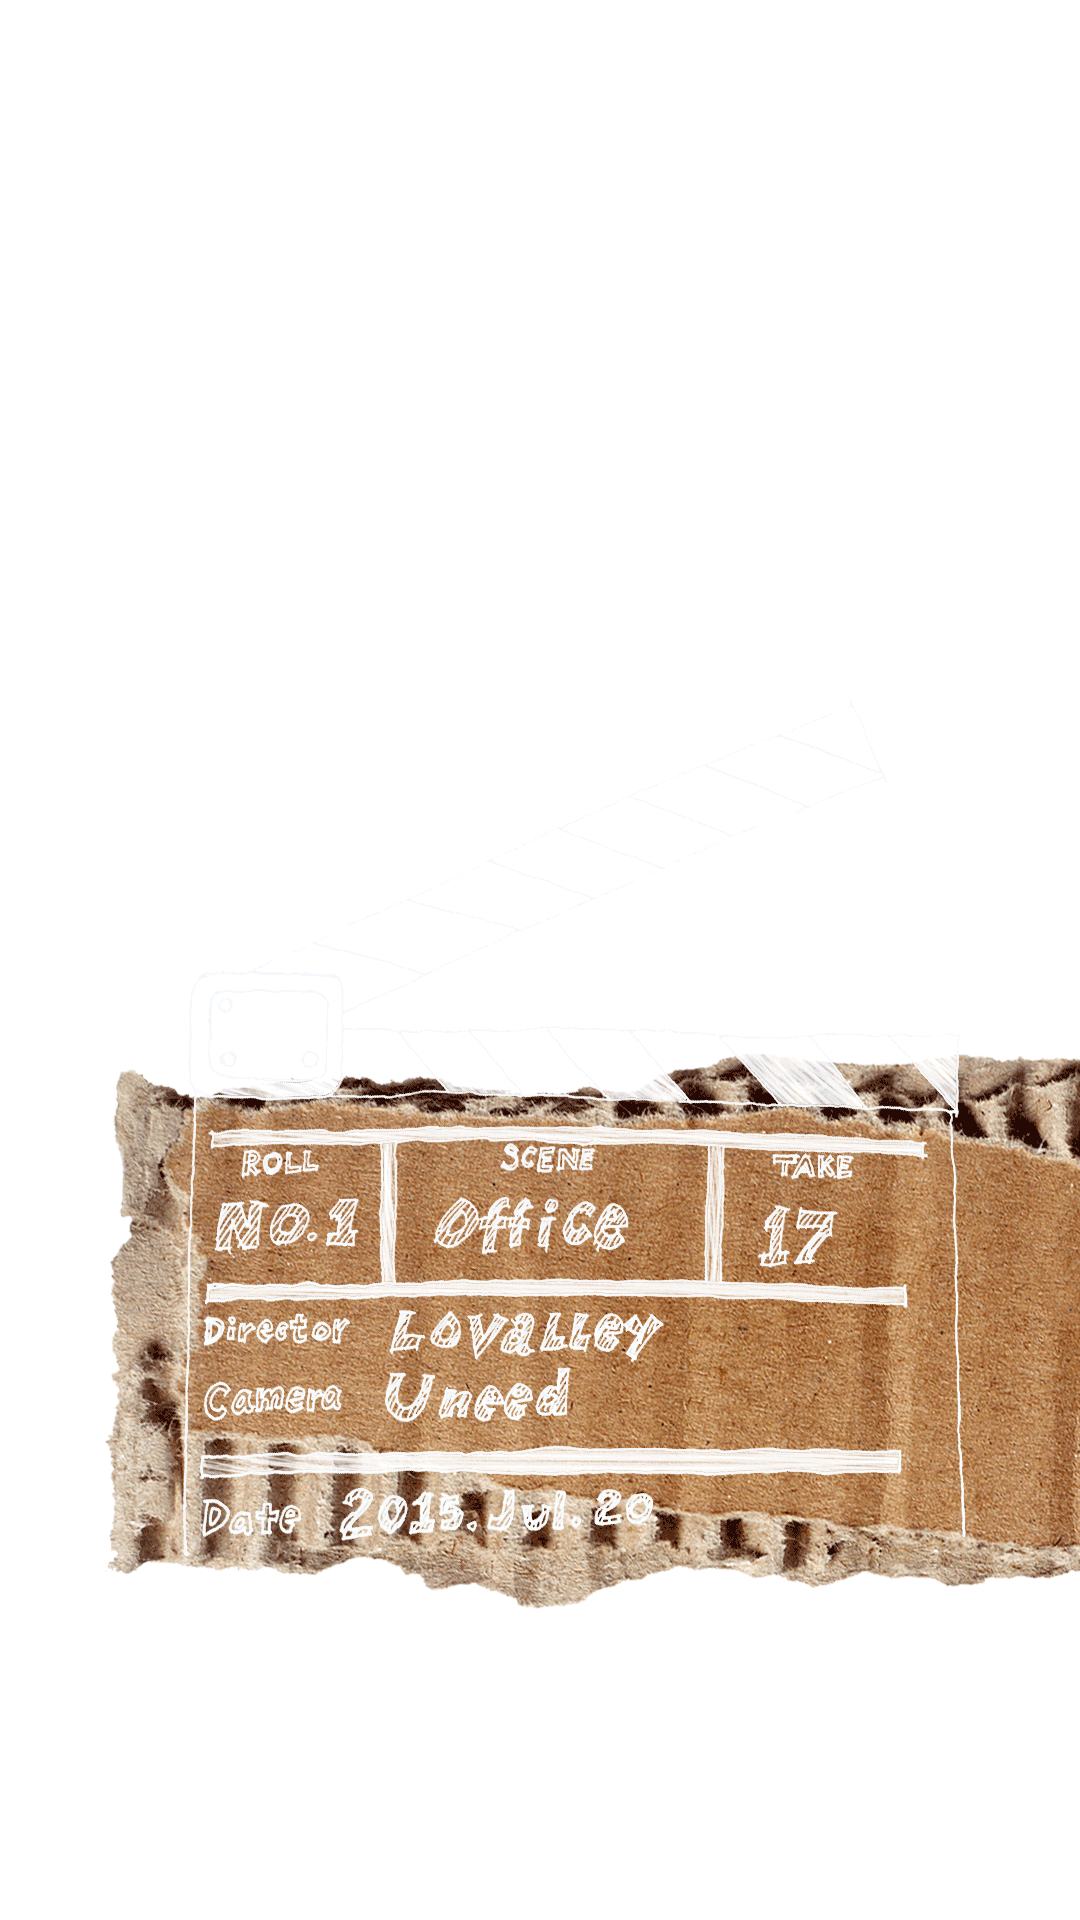 ROLL SCENE TAKE
No.1 Office 17
Director Lovalley
Camera Uneed
Date 2015.Jul.20